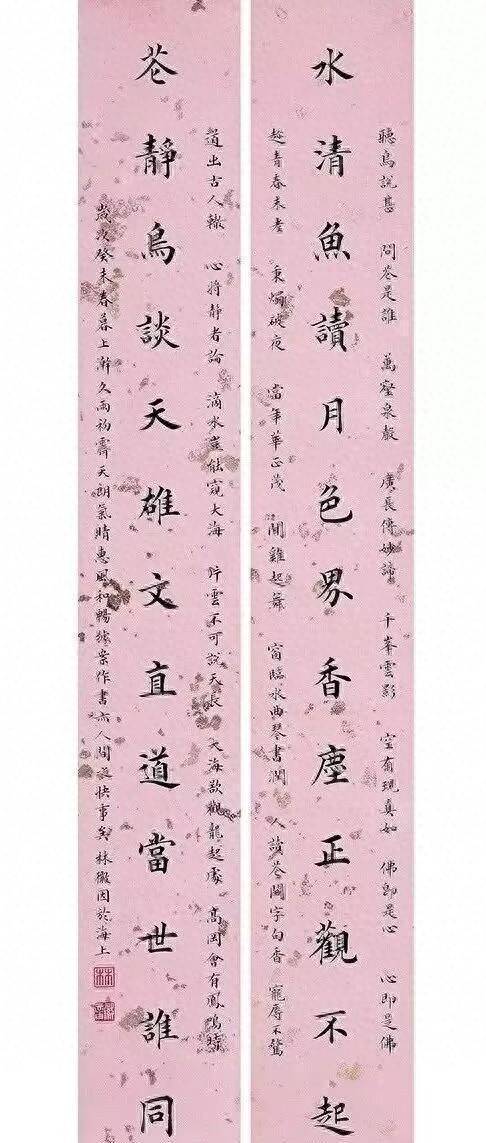 聽鳥說甚 問花是誰 萬壑泉聲 廣長傳妙諦 千峯雲影 空有現真如 佛即是心 心即是佛
水清魚讀月色界香塵正觀不起
趁青春未老 秉燭破夜 當年華正茂 聞雞起舞 窗臨水曲琴書潤 人讀花間字句香 寵辱不驚
道出古人轍 心將靜者論 滴水豈能窺大海 片雲不可說天長 大海欲觀龍起處 高岡會有鳳鳴時
花靜鳥談天雄文直道當世誰同
歲次癸未春暮上澣久雨初霽天朗氣晴惠風和暢據案作書亦人間快事矣林徽因於海上